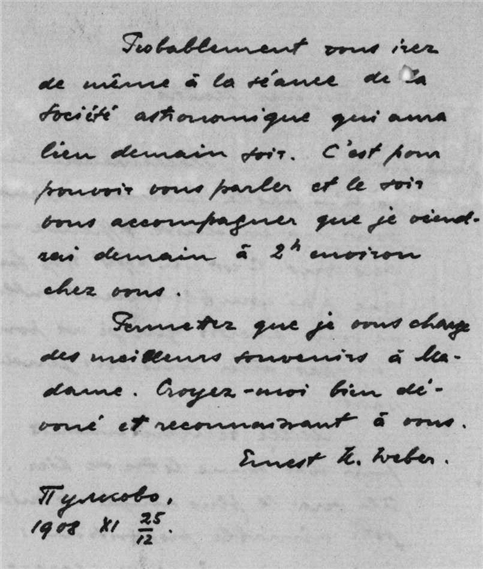 Probablement vous irez
de même à la séance de la
Société astronomique qui aura
lieu demain soir. C'est pour
pouvoir vous parler et le soir
vous accompagner que je viend-
rai demain à 2h environ
chez vous.
Permettez que je vous charge
des meilleurs souvenirs à Ma-
dame. Croyez-moi bien dé-
voué et reconnaissant à vous.
Ernest K. Weber.
Пулково,
1908 XI 25/12.